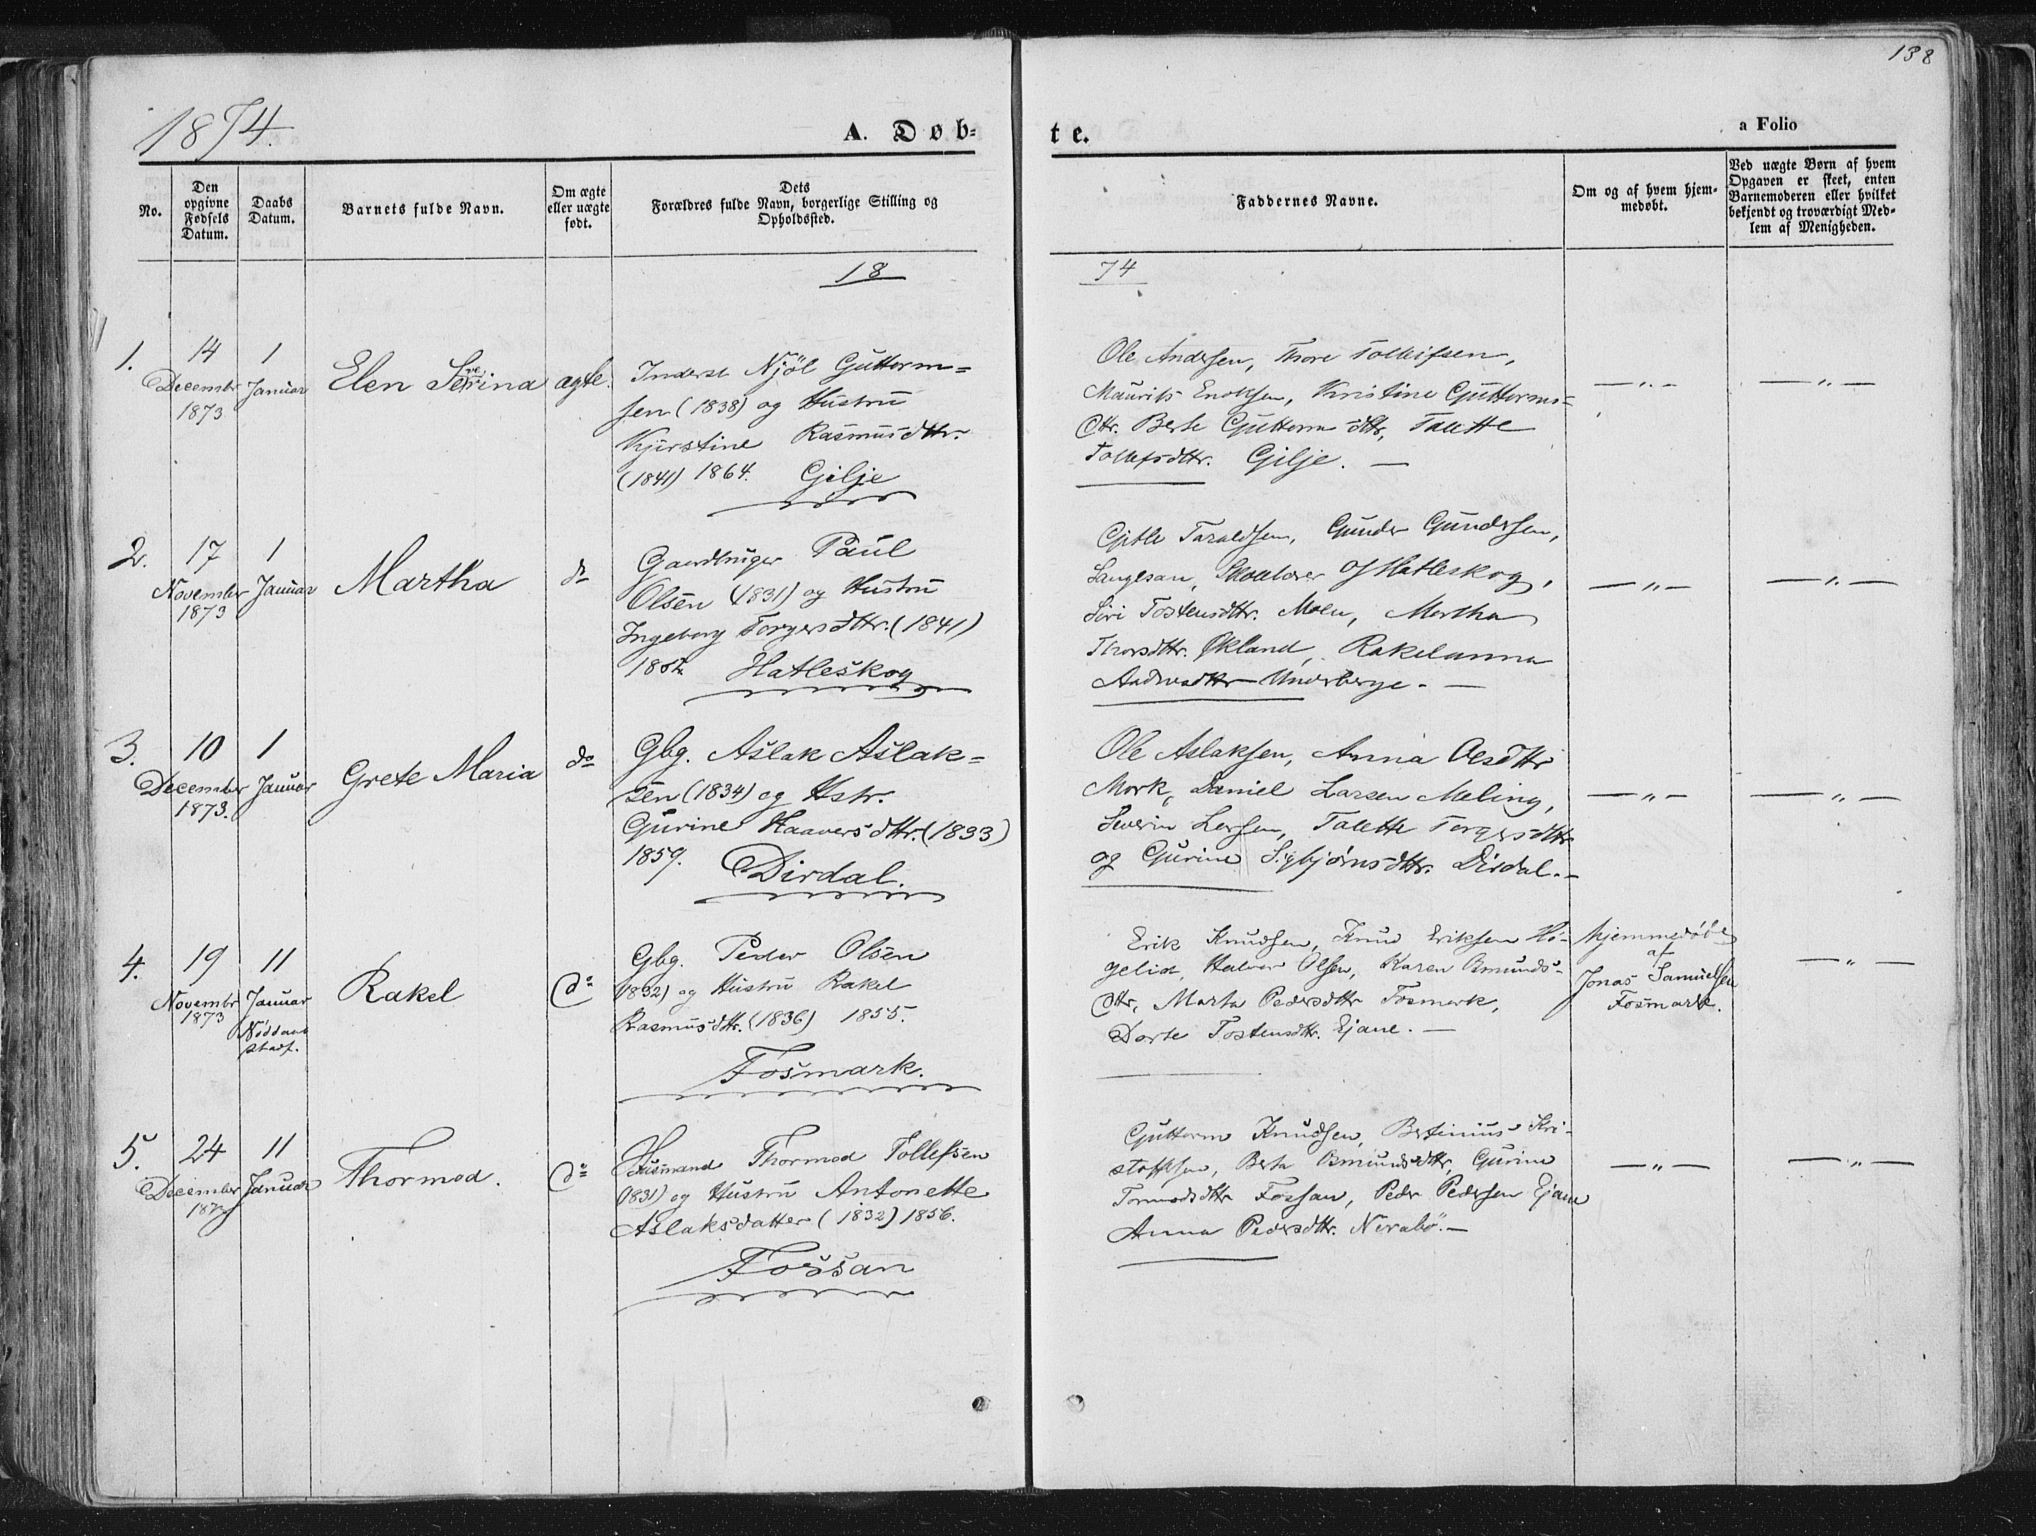 138
1874.
A. Døb-
te.
a Folio
No.
Den opgivne Fødsels Datum.
Daabs Datum.
Barnets fulde Navn.
Om ægte eller uægte født.
Dets Forældres fulde Navn, borgerlige Stilling og Opholdssted.
Faddernes Navne.
Om og af hvem hjemmedøbt.
Ved uægte Børn af hvem Opgaven er skeet, enten Barnemoderen eller hvilket bekjendt og troværdigt Medlem af Menigheden.
18
74
1.
14 Decembr 1873
1 Januar
Elen Serina
ægte.
Inderst Njöl Guttorm=
sen (1838) og Hustru
Kjirstine Rasmusdttr.
(1841) 1864. Gilje
Ole Andersen, Thore Tollefsen,
Maurits Enoksen, Kristine Guttorms-
dttr. Berte Guttormsdttr, Talette
Tollefsdttr. Gilje. —
— „ —
— „ —
2.
17 November 1873
1 Januar
Martha
do
Gaardbruger Paul
Olsen (1831) og Hustru
Ingeborg Torgersdttr. (1841)
Hatleskog
Gitle Taraldsen, Gunder Gundersen,
Hatleskog,
Siri Tostensdttr. Moen, Martha
Thorsdttr. Økland, Rakelanna
Underberge. —
— „ —
— „ —
3.
10 December 1873.
1 Januar
Grete Maria
do
Gbg. Aslak Aslak=
sen (1834) og Hstr.
Gurine Haaversdttr. (1833)
1859. Dirdal.
Ole Aslaksen, Anna Olesdttr
Mork, Daniel Larsen Meling,
Severin Larsen, Talette Torgersdttr
og Gurine Sigbjørnsdttr. Dirdal. —
— „ —
— „ —
4.
19 Novembr 1873
11 Januar
Nöddaab
stadf.
Rakel
do
Gbg. Peder Olsen
(1832) og Hustru Rakel
Rasmusdttr. (1836) 1855.
Fosmark.
Erik Knudsen, Knud Eriksen Hö-
gelid, Halvor Olsen, Karen Omunds-
dttr, Marta Pedersdttr Fosmark,
Dorte Tostensdttr. Ejane. —
hjemmedöbt
af
Jonas Samuelsen
Fosmark.
— „ —
5.
24 December 1873
11 Januar
Thormod.
do
Husmand Thormod Tollefsen
(1831) og Hustru Antonette
Aslaksdatter (1832) 1856.
Fossan
Guttorm Knudsen, Bertinius Kri-
stoffersen, Berta Omundsdttr, Gurine
Tormodsdttr Fossan, Peder Pedersen Ejane
Anna Pedersdttr. Nerabö. —
— „ —
— „ —